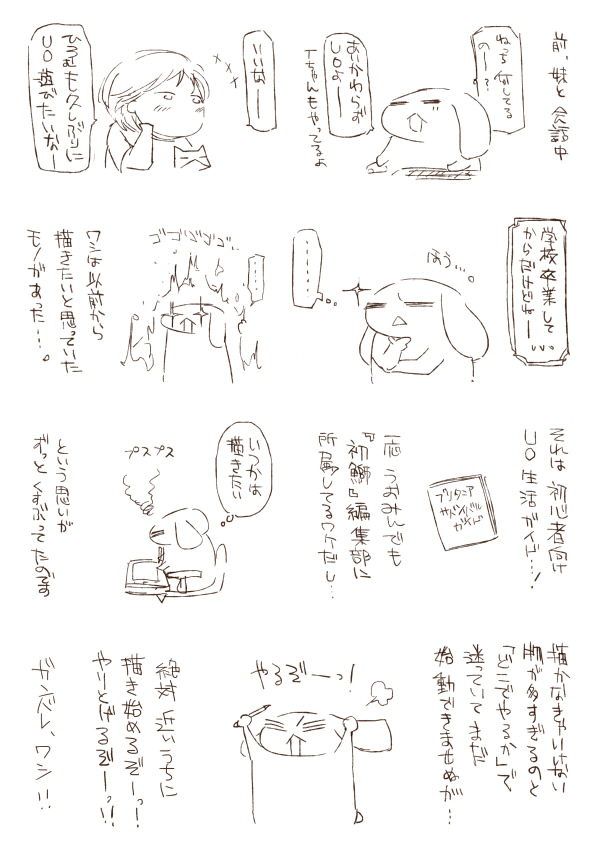 前、妹と会話中
ねっち何してる
のー?
あいかわらず
UOよー
Tちゃんもやってるよ
いいなー
ひろむも久しぶりに
UO遊びたいなー
学校卒業して
からだけどねー
ほう…。
‥‥‥
‥‥
ゴゴゴゴゴ‥
ワシは以前から
描きたいと思っていた
モノがあった‥‥。
それは初心者向け
UO生活ガイド‥‥!
ブリタニア
サバイバル
ガイド
一応うおみんでも
『初鰤』編集部に
所属してるワケだし‥‥
いつかは
描きたい
プスプス
という思いが
ずっとくすぶってたのです
描かなきゃいけない
肌が多すぎるのと
「どこでやるか」で
迷っていてまだ
始動できませぬが‥‥
やるぞーっ!
絶対近いうちに
描き始めるぞーっ!
やりとげるぞーっ!!
ガンバレ、ワシ!!